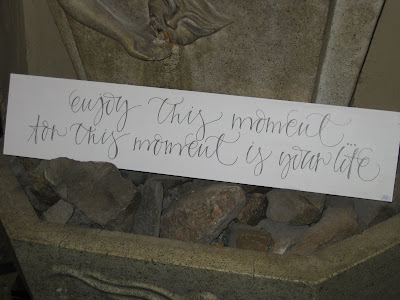 enjoy this moment
for this moment is your life